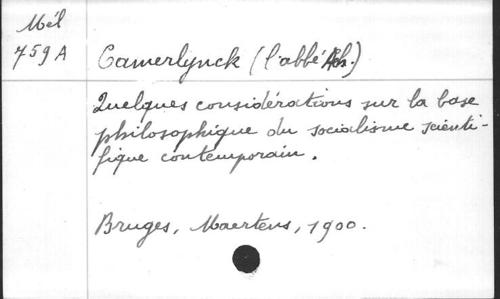 Mél
759A
Camerlynck (l'abbé Ach.)
Quelques considérations sur la base
philosophique du socialisme scienti-
fique contemporain.
Bruges, Maertens, 1900.